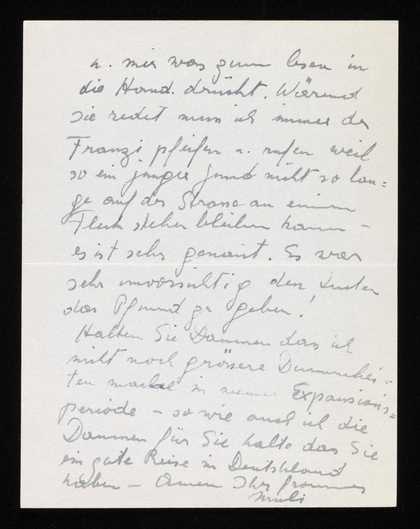 u. mir was zum lesen in
die Hand drückt. Wärend
sie redet muss ich immer der
Franzi pfeifen u. rufen weil
so ein junger Hund nicht so lan-
ge auf der Strasse an einem
Fleck stehen bleiben kann –
es ist sehr genant. Es war
sehr unvorsichtig den Leuten
das Pfund zu geben!
Halten Sie Daumen das ich
nicht noch grössere Dummhei-
ten mache in meiner Expansions=
periode – so wie auch ich die
Daumen für Sie halte das Sie
ein gute Reise in Deutschland
haben – Amen Ihr frommes